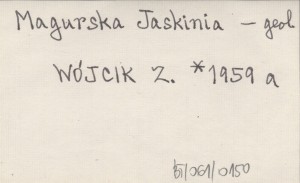 Magurska Jaskinia – geol
WÓJCIK Z. *1959 a
BI/061/0150